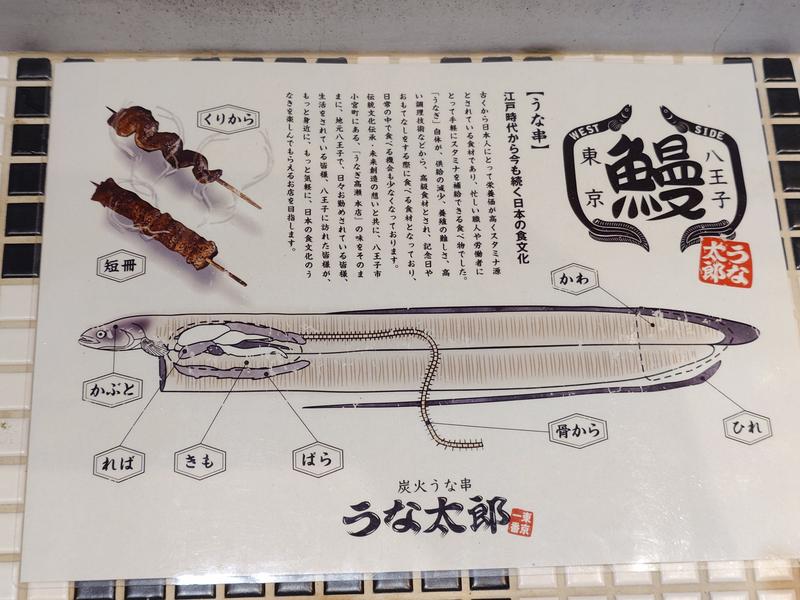 WEST SIDE
東京
鰻
八王子
うな太郎
【うな串】
江戸時代から今も続く日本の食文化
古くから日本人にとって栄養価が高くスタミナ源
とされている食材であり、忙しい職人や労働者に
とって手軽にスタミナを補給できる食べ物でした。
「うなぎ」自体が、供給の減少、養殖の難しさ、高
い調理技術などから、高級食材とされ、記念日や
おもてなしをする際に食べる食材となっており、
日常の中で食べる機会も少なくなっております。
伝統文化伝承・未来創造の想いと共に、八王子市
小宮町にある、「うなぎ高瀬本店」の味をそのま
まに、地元八王子で、日々お勤めされている皆様、
生活をされている皆様、八王子に訪れた皆様が、
もっと身近に、もっと気軽に、日本の食文化のう
なぎを楽しんでもらえるお店を目指します。
くりから
短冊
かわ
かぶと
れば
きも
ばら
骨から
ひれ
炭火うな串
うな太郎
東京一番